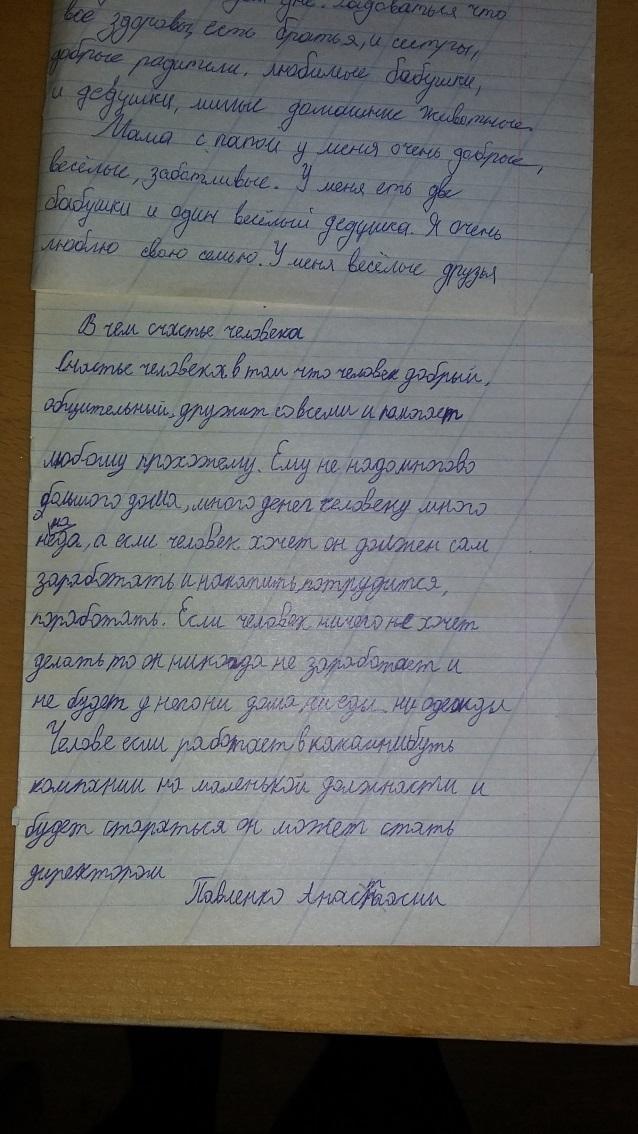 дне. Радоваться что
все здоровы, есть братья, и сестры,
добрые радители, любимые бабушки,
и дедушки, милые домашние животные.
Мама с папой у меня очень добрые,
весёлые, заботливые. У меня есть две
бабушки и один весёлый дедушка. Я очень
люблю свою семью. У меня весёлые друзья
В чем счастье человека
Счастье человека в том что человек добрый,
общительный, дружит со всеми и памогает
любому прохожему. Ему не надо многово
большого дома, много денег человеку много
не на да, а если человек хочет он должен сам
заработать и накапить, потрудится,
поработать. Если человек ничего не хочет
делать то он никогда не заработает и
не будет у него ни дома ни еды ни одежды
Челове если работает в какаинибуть
компании на маленькой должности и
будет стараться он может стать
директором
Павленко Анастасии